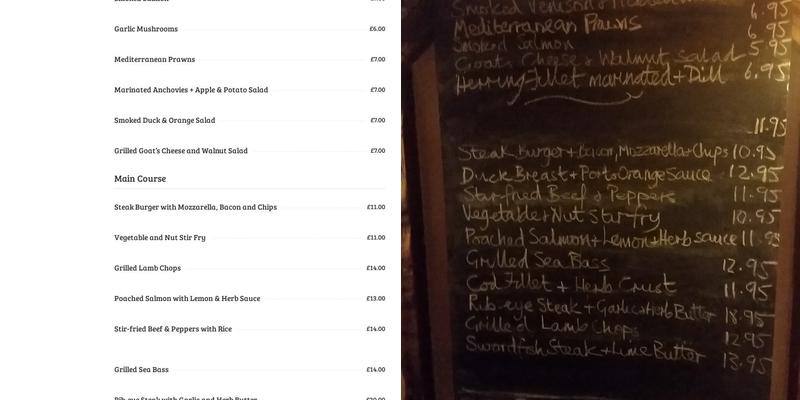 Garlic Mushrooms £6.00
Mediterranean Prawns £7.00
Marinated Anchovies + Apple & Potato Salad £7.00
Smoked Duck & Orange Salad £7.00
Grilled Goat's Cheese and Walnut Salad £7.00
Main Course
Steak Burger with Mozzarella, Bacon and Chips £11.00
Vegetable and Nut Stir Fry £11.00
Grilled Lamb Chops £14.00
Poached Salmon with Lemon & Herb Sauce £13.00
Stir-fried Beef & Peppers with Rice £14.00
Grilled Sea Bass £14.00
Rib-eye Steak with Garlic and Herb Butter
Smoked Venison 6.95
Mediterranean Prawns 6.95
Smoked Salmon 5.95
Goats Cheese + Walnut Salad
Herring fillet marinated + Dill 6.95
11.95
Steak Burger + Bacon, Mozzarella + Chips 10.95
Duck Breast + Port + Orange Sauce 12.95
Stir-fried Beef & Peppers 11.95
Vegetable + Nut Stir-fry 10.95
Poached Salmon + Lemon + Herb sauce 11.95
Grilled Sea Bass 12.95
Cod Fillet + Herb Crust 11.95
Rib-eye Steak + Garlic + Herb Butter 18.95
Grilled Lamb Chops 12.95
Swordfish Steak + Lime Butter 13.95